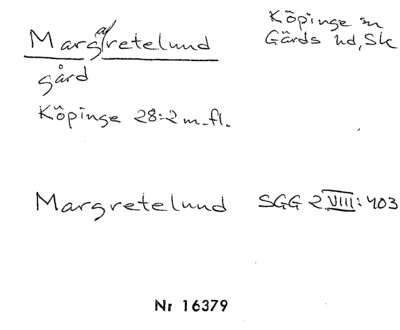 Margaretelund
gård
Köpinge sn
Gärds hd, Sk
Köpinge 28:2 m.fl.
Margretelund SGG 2 VIII: 403
Nr 16379